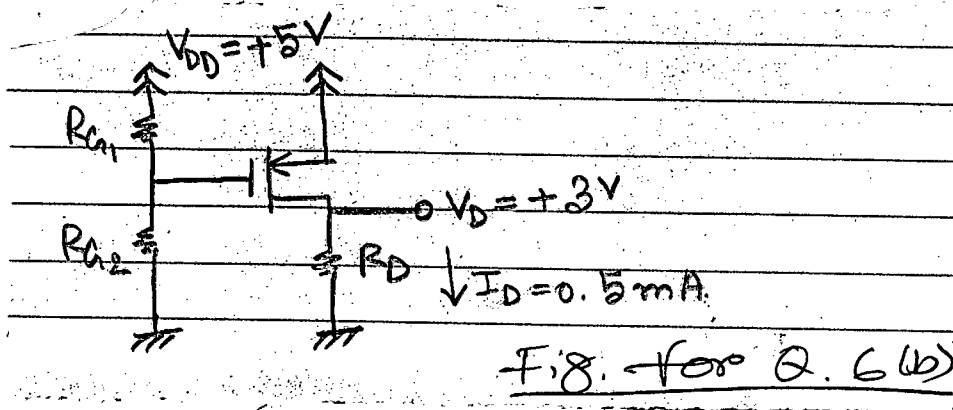 V_DD = +5V
R_G1
V_D = +3V
R_G2
R_D
I_D = 0.5mA.
Fig. for Q. 6(b)